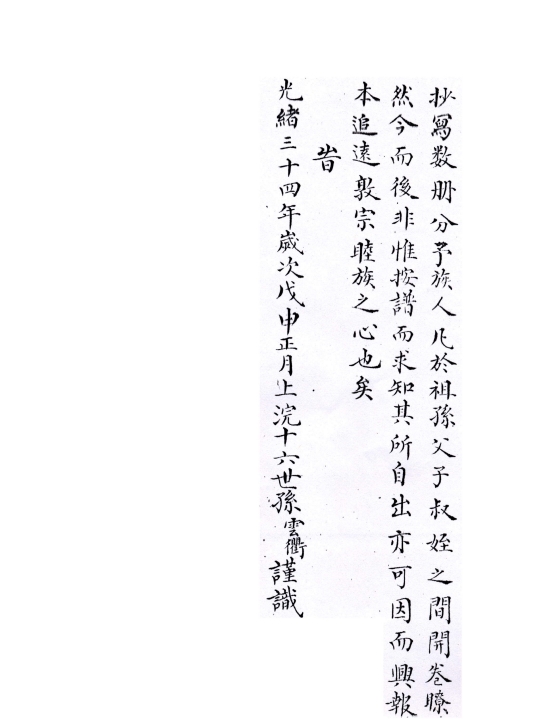 抄寫数册分予族人凡於祖孫父子叔姪之間開卷瞭
然今而後非惟按譜而求知其所自出亦可因而興報
本追遠敦宗睦族之心也矣
旹
光緒三十四年歲次戊申正月上浣十六世孫雲衢謹識